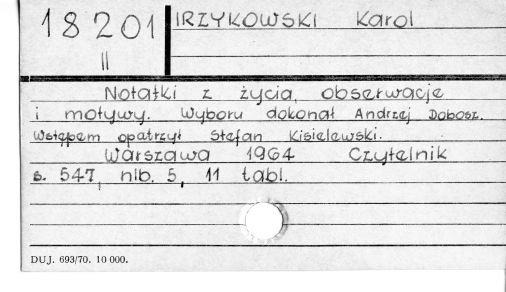 18201
II
IRZYKOWSKI Karol
Notatki z życia, obserwacje
i motywy. Wyboru dokonał Andrzej Dobosz.
Wstępem opatrzył Stefan Kisielewski.
Warszawa 1964 Czytelnik
s. 547, nlb. 5, 11 tabl.
DUJ. 693/70. 10 000.